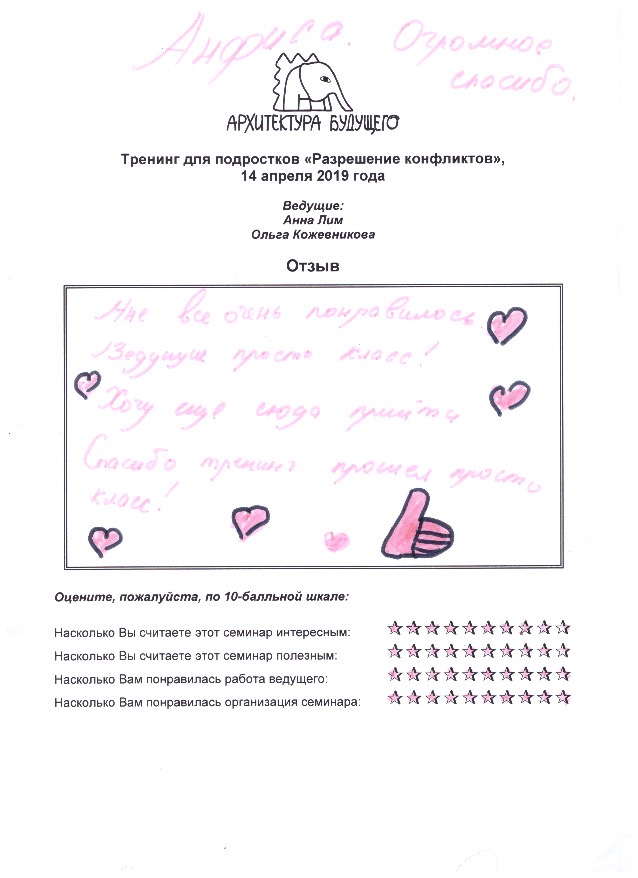 Анфиса. Огромное
спасибо
АРХИТЕКТУРА БУДУЩЕГО
Тренинг для подростков «Разрешение конфликтов»,
14 апреля 2019 года
Ведущие:
Анна Лим
Ольга Кожевникова
Отзыв
Мне все очень понравилось
Ведущие просто класс!
Хочу еще сюда прийти
Спасибо тренинг прошел просто
класс!
Оцените, пожалуйста, по 10-балльной шкале:
Насколько Вы считаете этот семинар интересным:
Насколько Вы считаете этот семинар полезным:
Насколько Вам понравилась работа ведущего:
Насколько Вам понравилась организация семинара: